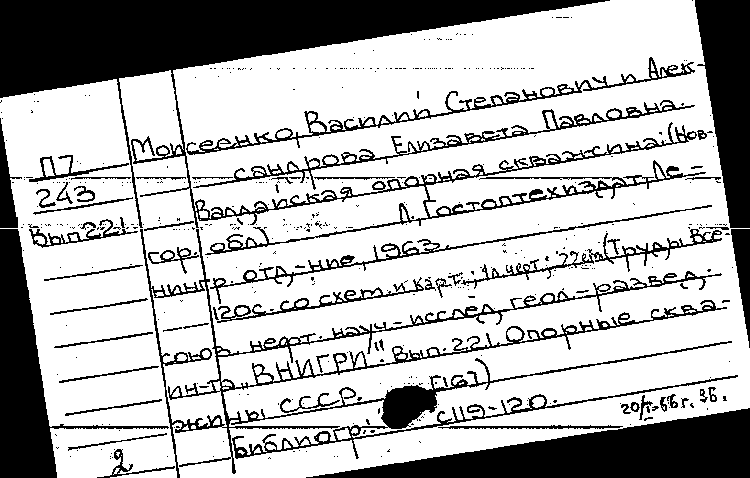 Моисеенко, Василий Степанович и Алек-
П7 сандрова, Елизавета Павловна.
243 Валдайская опорная скважина: (Нов-
Вып 221 гор. обл.) Л., Гостоптехиздат, Ле=
нингр. отд,-ние, 1963.
120с. со схем. и карт.; 1л. черт.; 22см (Труды Все-
союз. нефт. науч.-исслед, геол.-развед.
ин-та „ВНИГРИ". Вып. 221. Опорные сква-
жины СССР.
Библиогр.: с119-120.
2